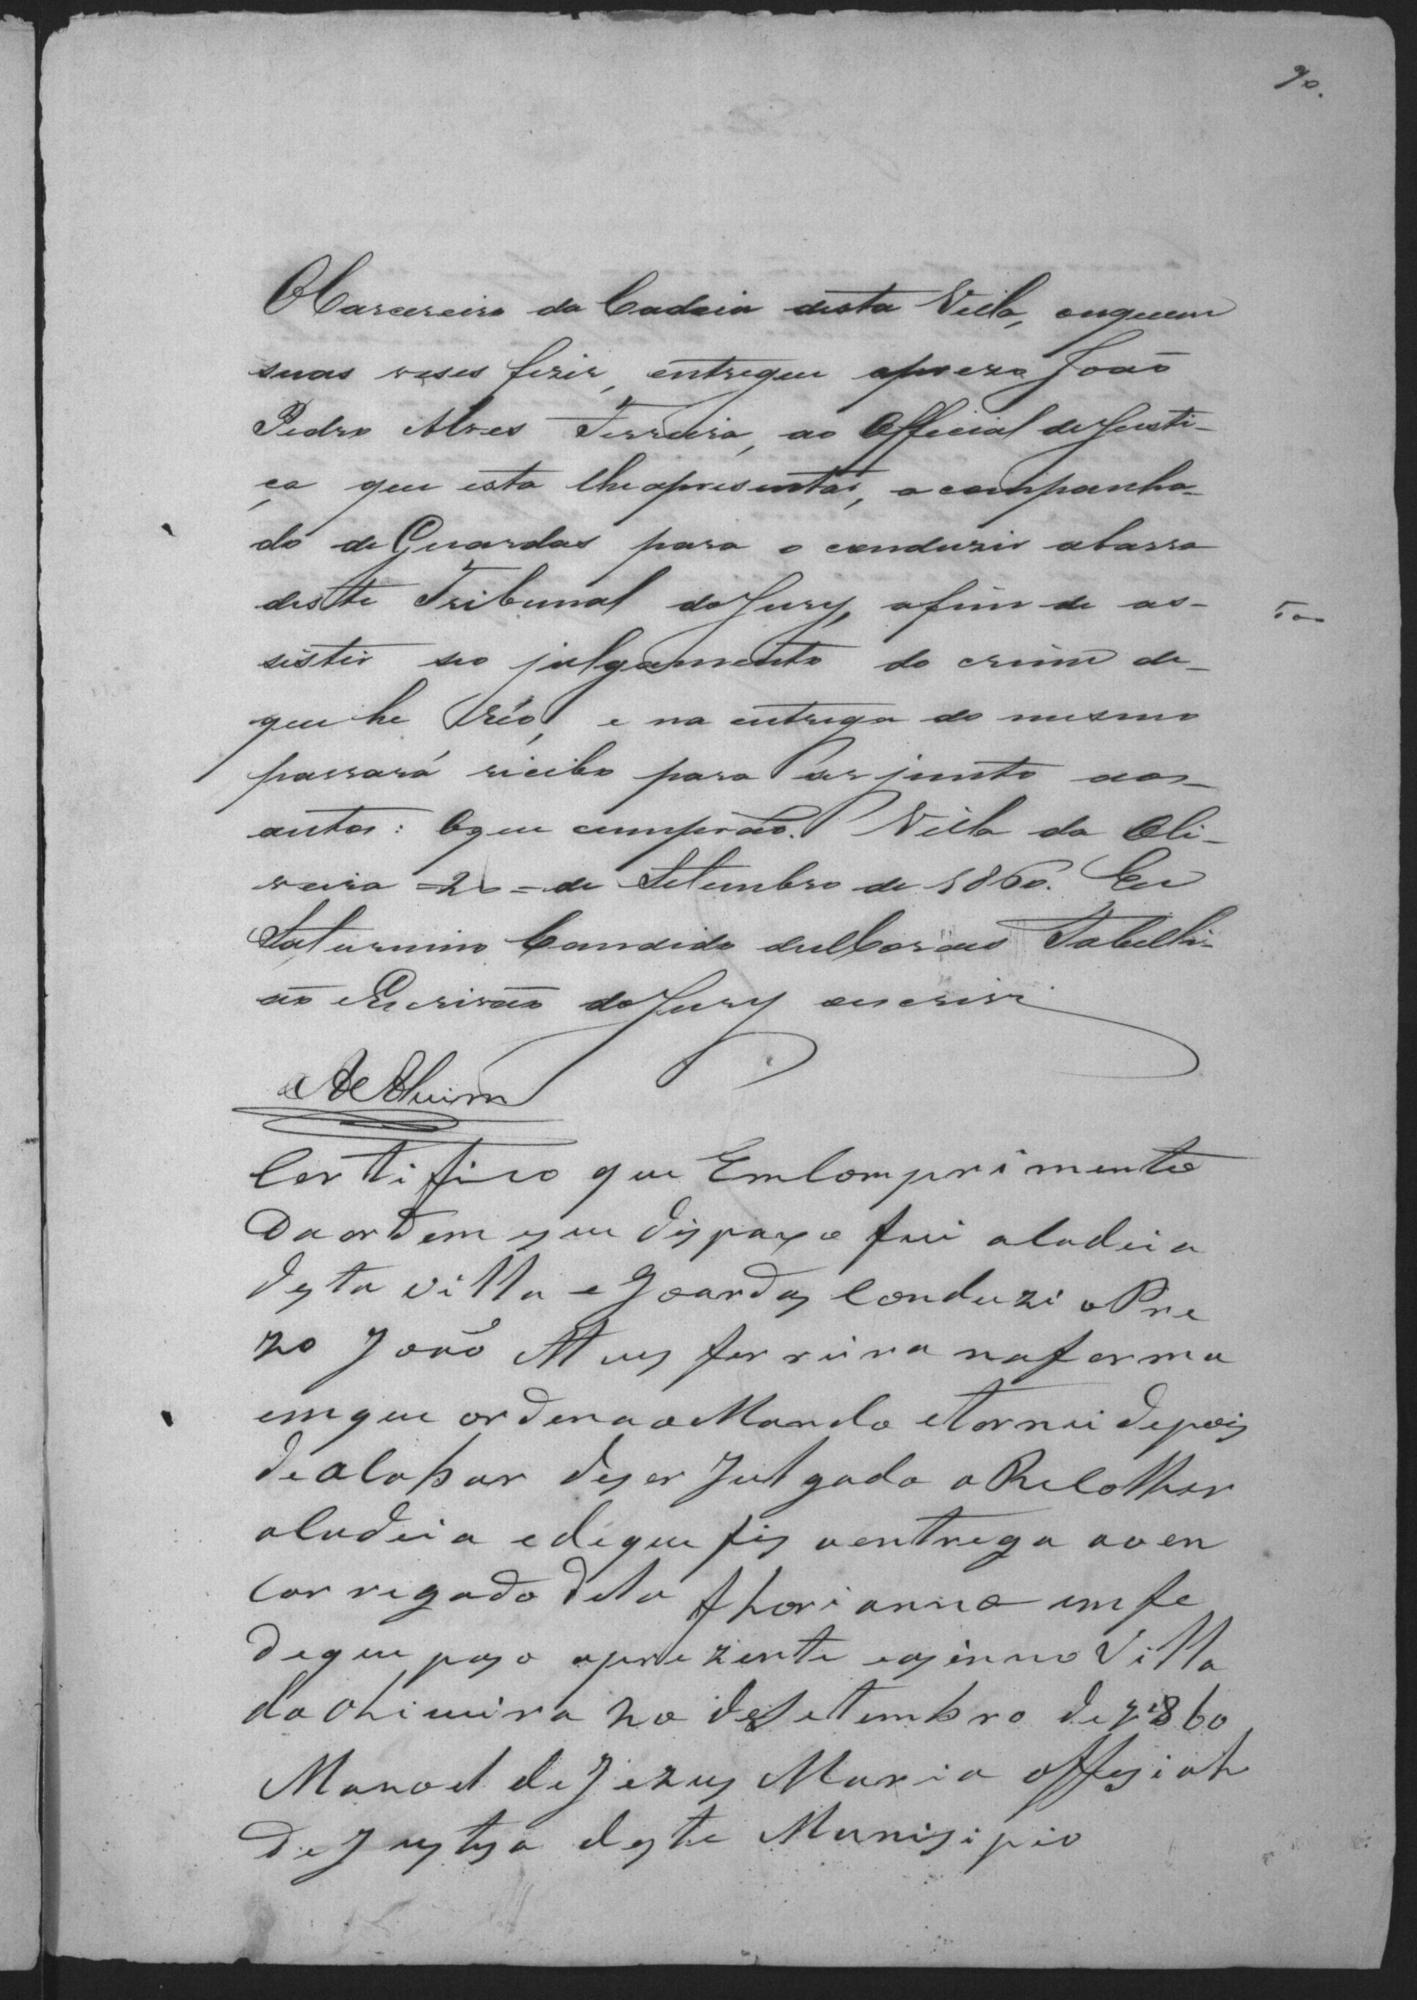 90.
O Carcereiro da Cadeia desta Villa, ouquem
suas veses fizer, entregue opreso João
Pedro Alves Ferreira, ao Official deJusti-
ça que esta lheapresentar, acompanha-
do deGuardas para o conduzir abarra
deste Tribunal doJury, afim de as-
sistir seo julgamento do crime de-
que he réo, e na entrega do mesmo
passará recibo para ser junto aos
autos: Oque cumprão. Villa da Oli-
veira =20= de Setembro de 1860. Eu
Saturnino Candido deMoraes Tabelli-
ão eEscrivão doJury oescrevi
Certifico que EmComprimento
Daordem que fui aCadeia
desta villa e Goardas Conduzi oPre
zo João Alves ferreira naforma
emque ordenaoMando etornei depois
deacabar deser Julgado aRecolher
aCadeia edeque fis aentrega aoen
Carregado dela fhorianno emfe
deque paso aprezente easinno Villa
daOliveira 20 deSetembro de 1860
Manoel deJezus Maria offisiah
DeJustisa deste Munisipio